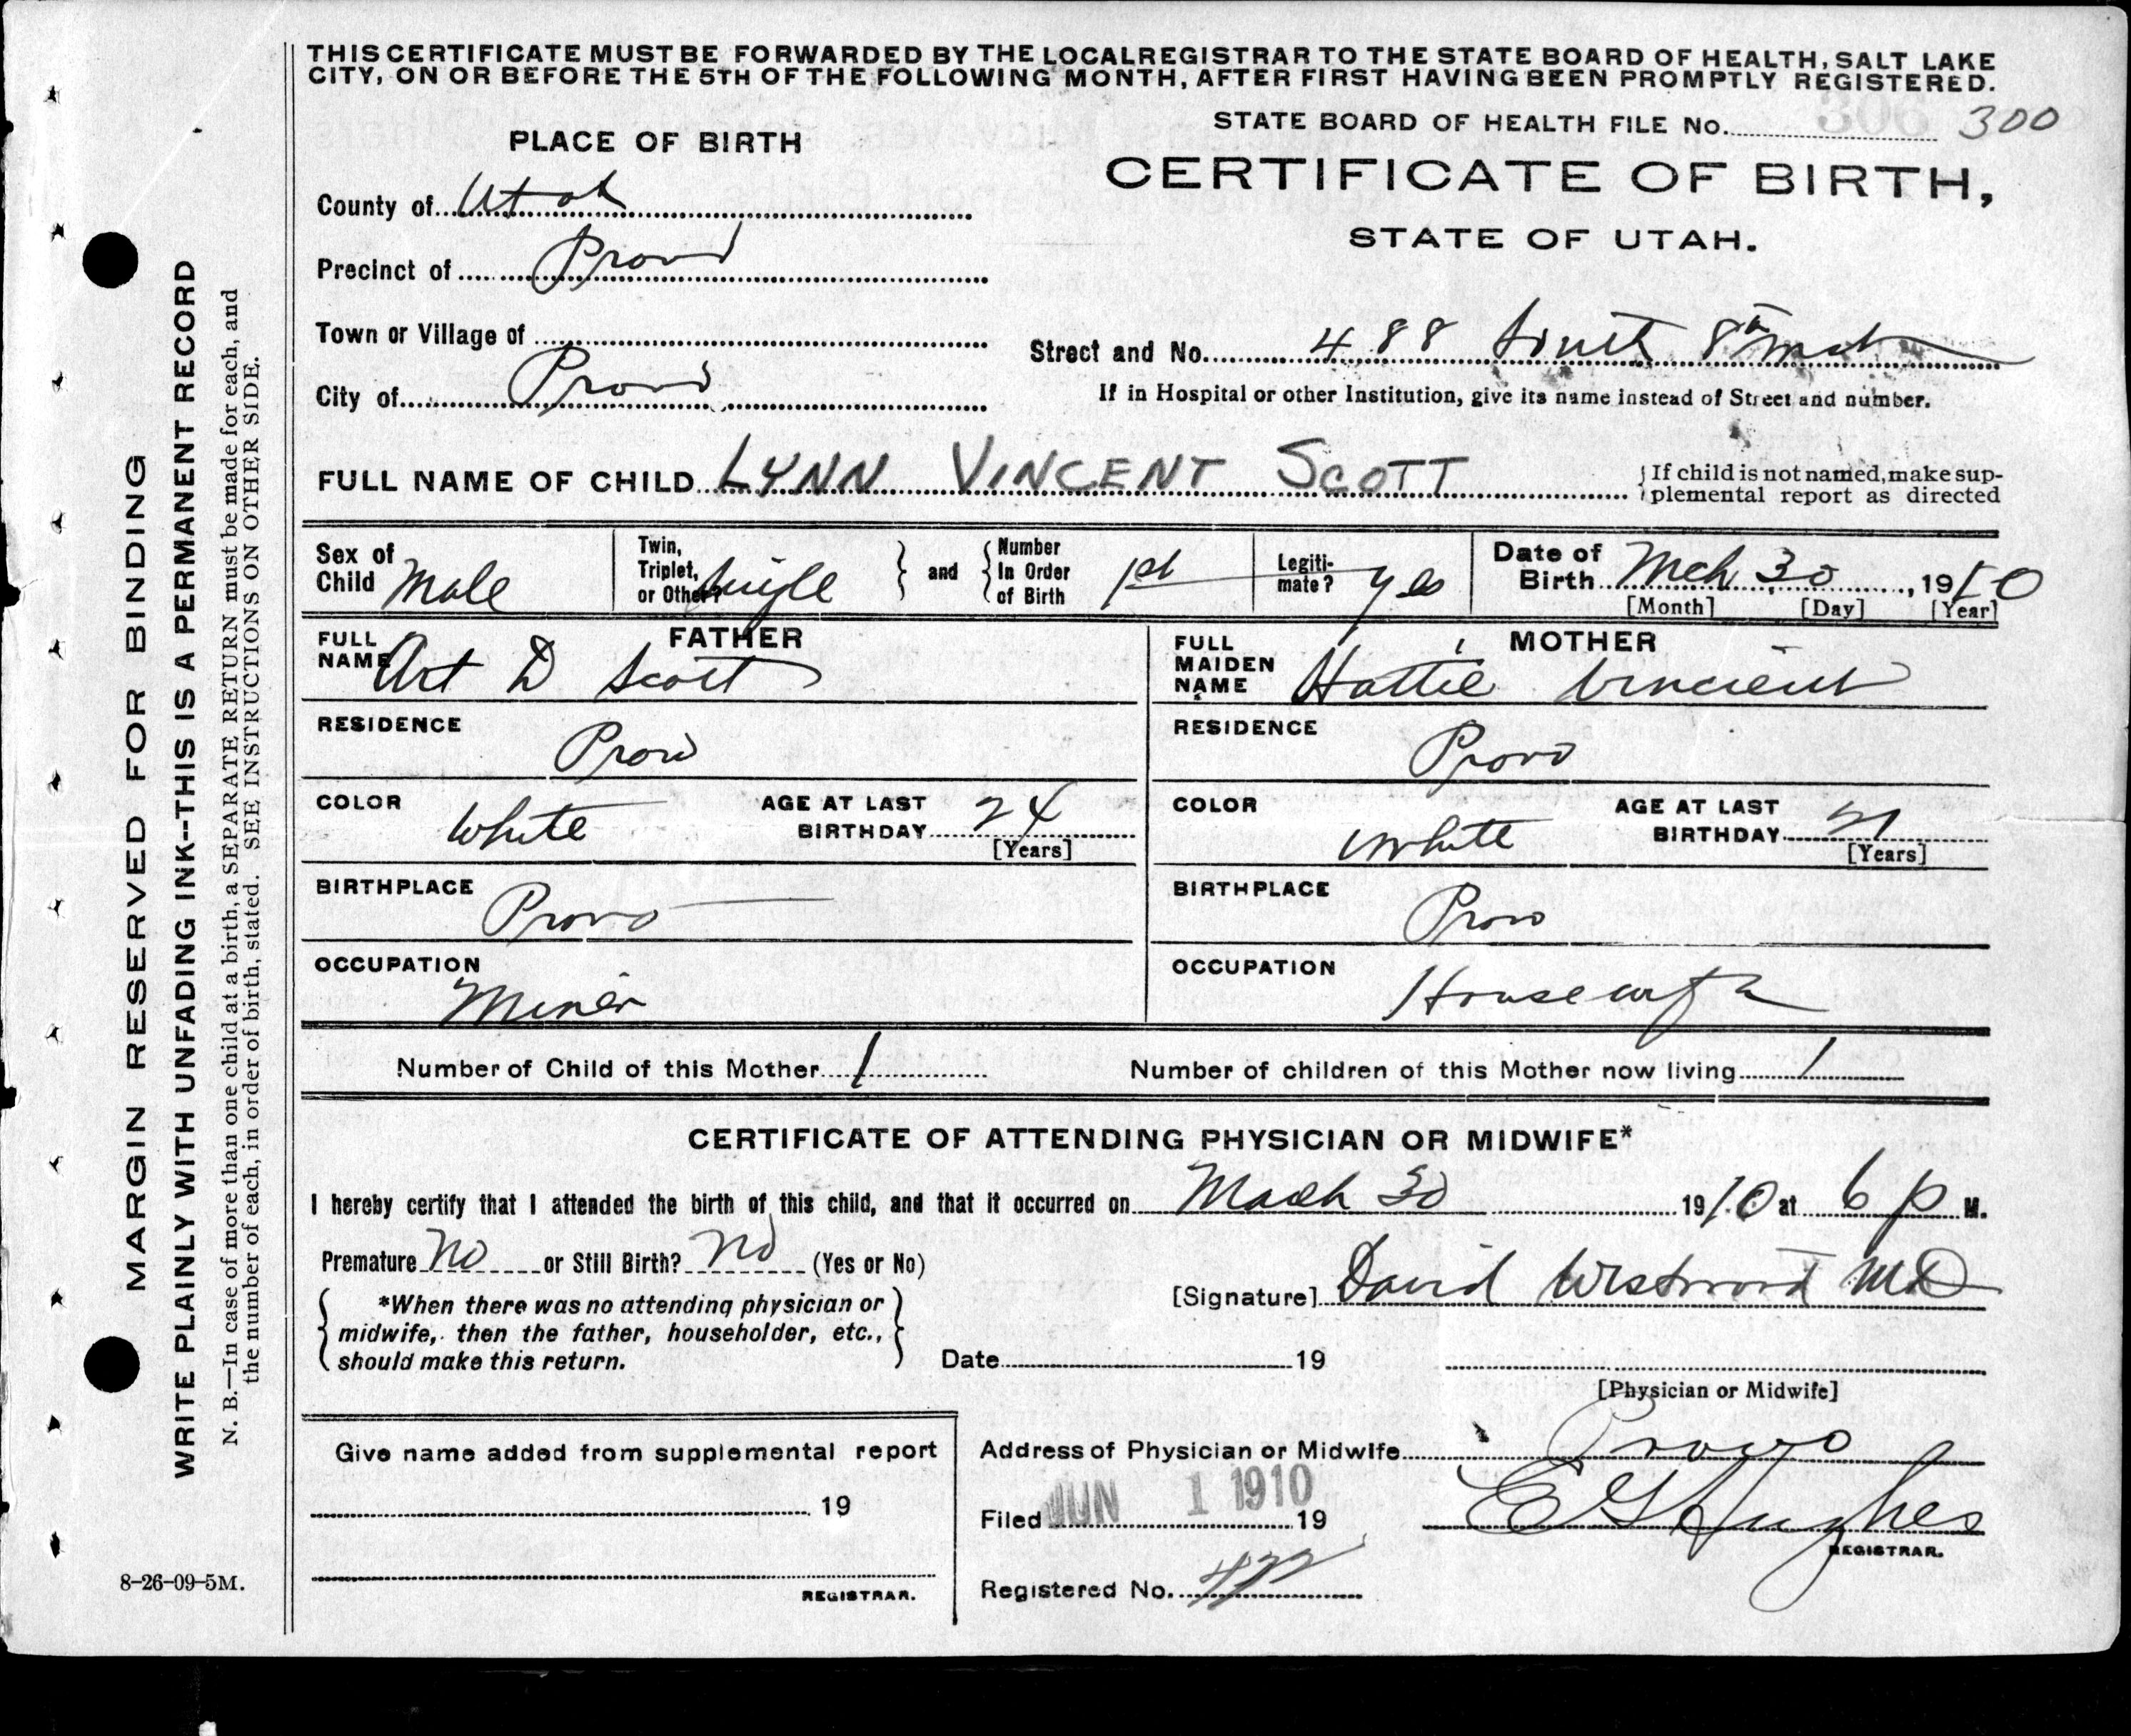 THIS CERTIFICATE MUST BE FORWARDED BY THE LOCAL REGISTRAR TO THE STATE BOARD OF HEALTH, SALT LAKE
CITY, ON OR BEFORE THE 5TH OF THE FOLLOWING MONTH, AFTER FIRST HAVING BEEN PROMPTLY REGISTERED.
STATE BOARD OF HEALTH FILE No. 300
PLACE OF BIRTH
CERTIFICATE OF BIRTH,
STATE OF UTAH.
County of Utah
Precinct of Provo
Town or Village of
Street and No. 488 South 8th West
City of Provo
If in Hospital or other Institution, give its name instead of Street and number.
FULL NAME OF CHILD LYNN VINCENT SCOTT
If child is not named, make sup-
plemental report as directed
Sex of Child Male
Twin, Triplet, or Other? Single
and
Number In Order of Birth 1st
Legiti-mate? Yes
Date of Birth Mch 30, 1910
[Month] [Day] [Year]
FATHER
FULL NAME Art D Scott
RESIDENCE Provo
COLOR White
AGE AT LAST BIRTHDAY 24
[Years]
BIRTHPLACE Provo
OCCUPATION Miner
MOTHER
FULL MAIDEN NAME Hattie Vincient
RESIDENCE Provo
COLOR White
AGE AT LAST BIRTHDAY 21
[Years]
BIRTHPLACE Provo
OCCUPATION Housewife
Number of Child of this Mother 1
Number of children of this Mother now living 1
CERTIFICATE OF ATTENDING PHYSICIAN OR MIDWIFE*
I hereby certify that I attended the birth of this child, and that it occurred on March 30 1910 at 6 p M.
Premature No or Still Birth? No (Yes or No)
*When there was no attending physician or
midwife, then the father, householder, etc.,
should make this return.
[Signature] David Westwood MD
Date 19
[Physician or Midwife]
Give name added from supplemental report
19
REGISTRAR.
Address of Physician or Midwife Provo
Filed JUN 1 1910 19
E G Hughes
REGISTRAR.
Registered No.
MARGIN RESERVED FOR BINDING
WRITE PLAINLY WITH UNFADING INK--THIS IS A PERMANENT RECORD
N. B.—In case of more than one child at a birth, a SEPARATE RETURN must be made for each, and
the number of each, in order of birth, stated. SEE INSTRUCTIONS ON OTHER SIDE.
8-26-09-5M.